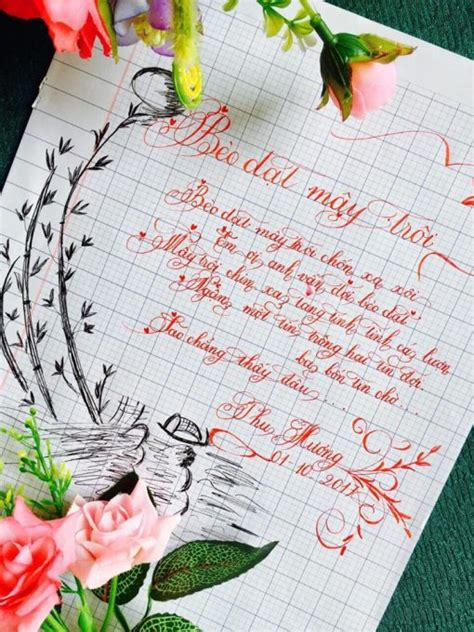 Bèo dạt mây trôi
Bèo dạt mây trôi chốn xa xôi
Em ơi anh vẫn đợi bèo dạt
Mây trôi chim xa tang tính tình cá lượn
Ngóng một tin trông hai tin đợi
ba bốn tin chờ...
Sao chẳng thấy đâu....
Thu Hương
01-10-2017